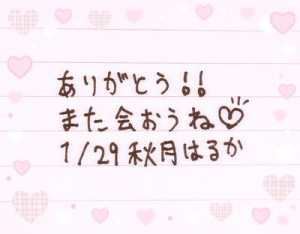 ありがとう!!
また会おうね♡
1/29 秋月はるか